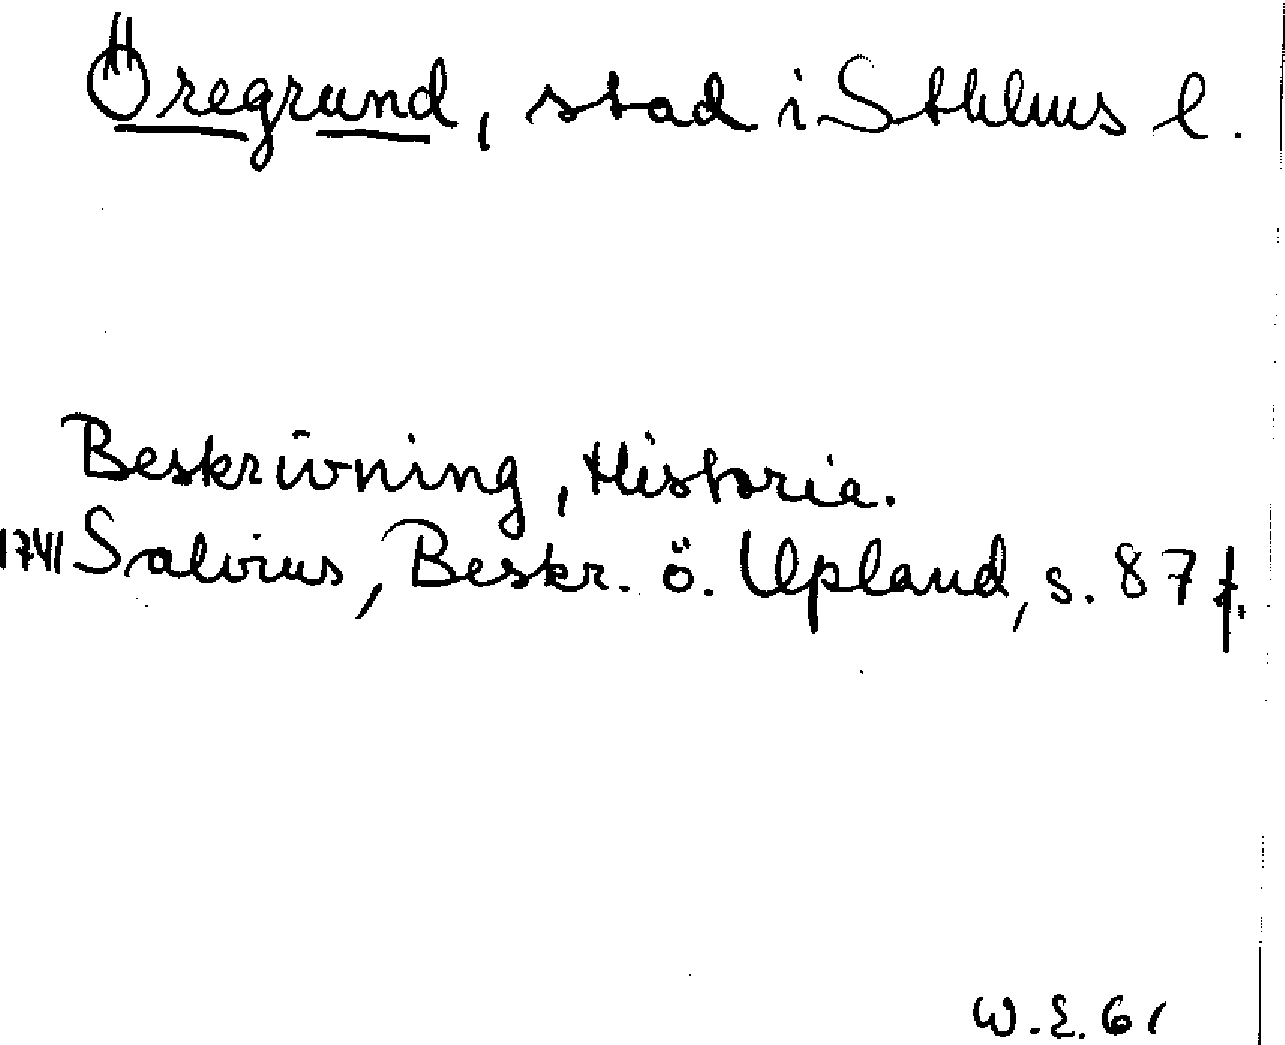 Öregrund, stad i Sthlms l.
Beskrivning, Historia.
1741 Salvius, Beskr. ö. Upland, s. 87 f.
W.E. 61